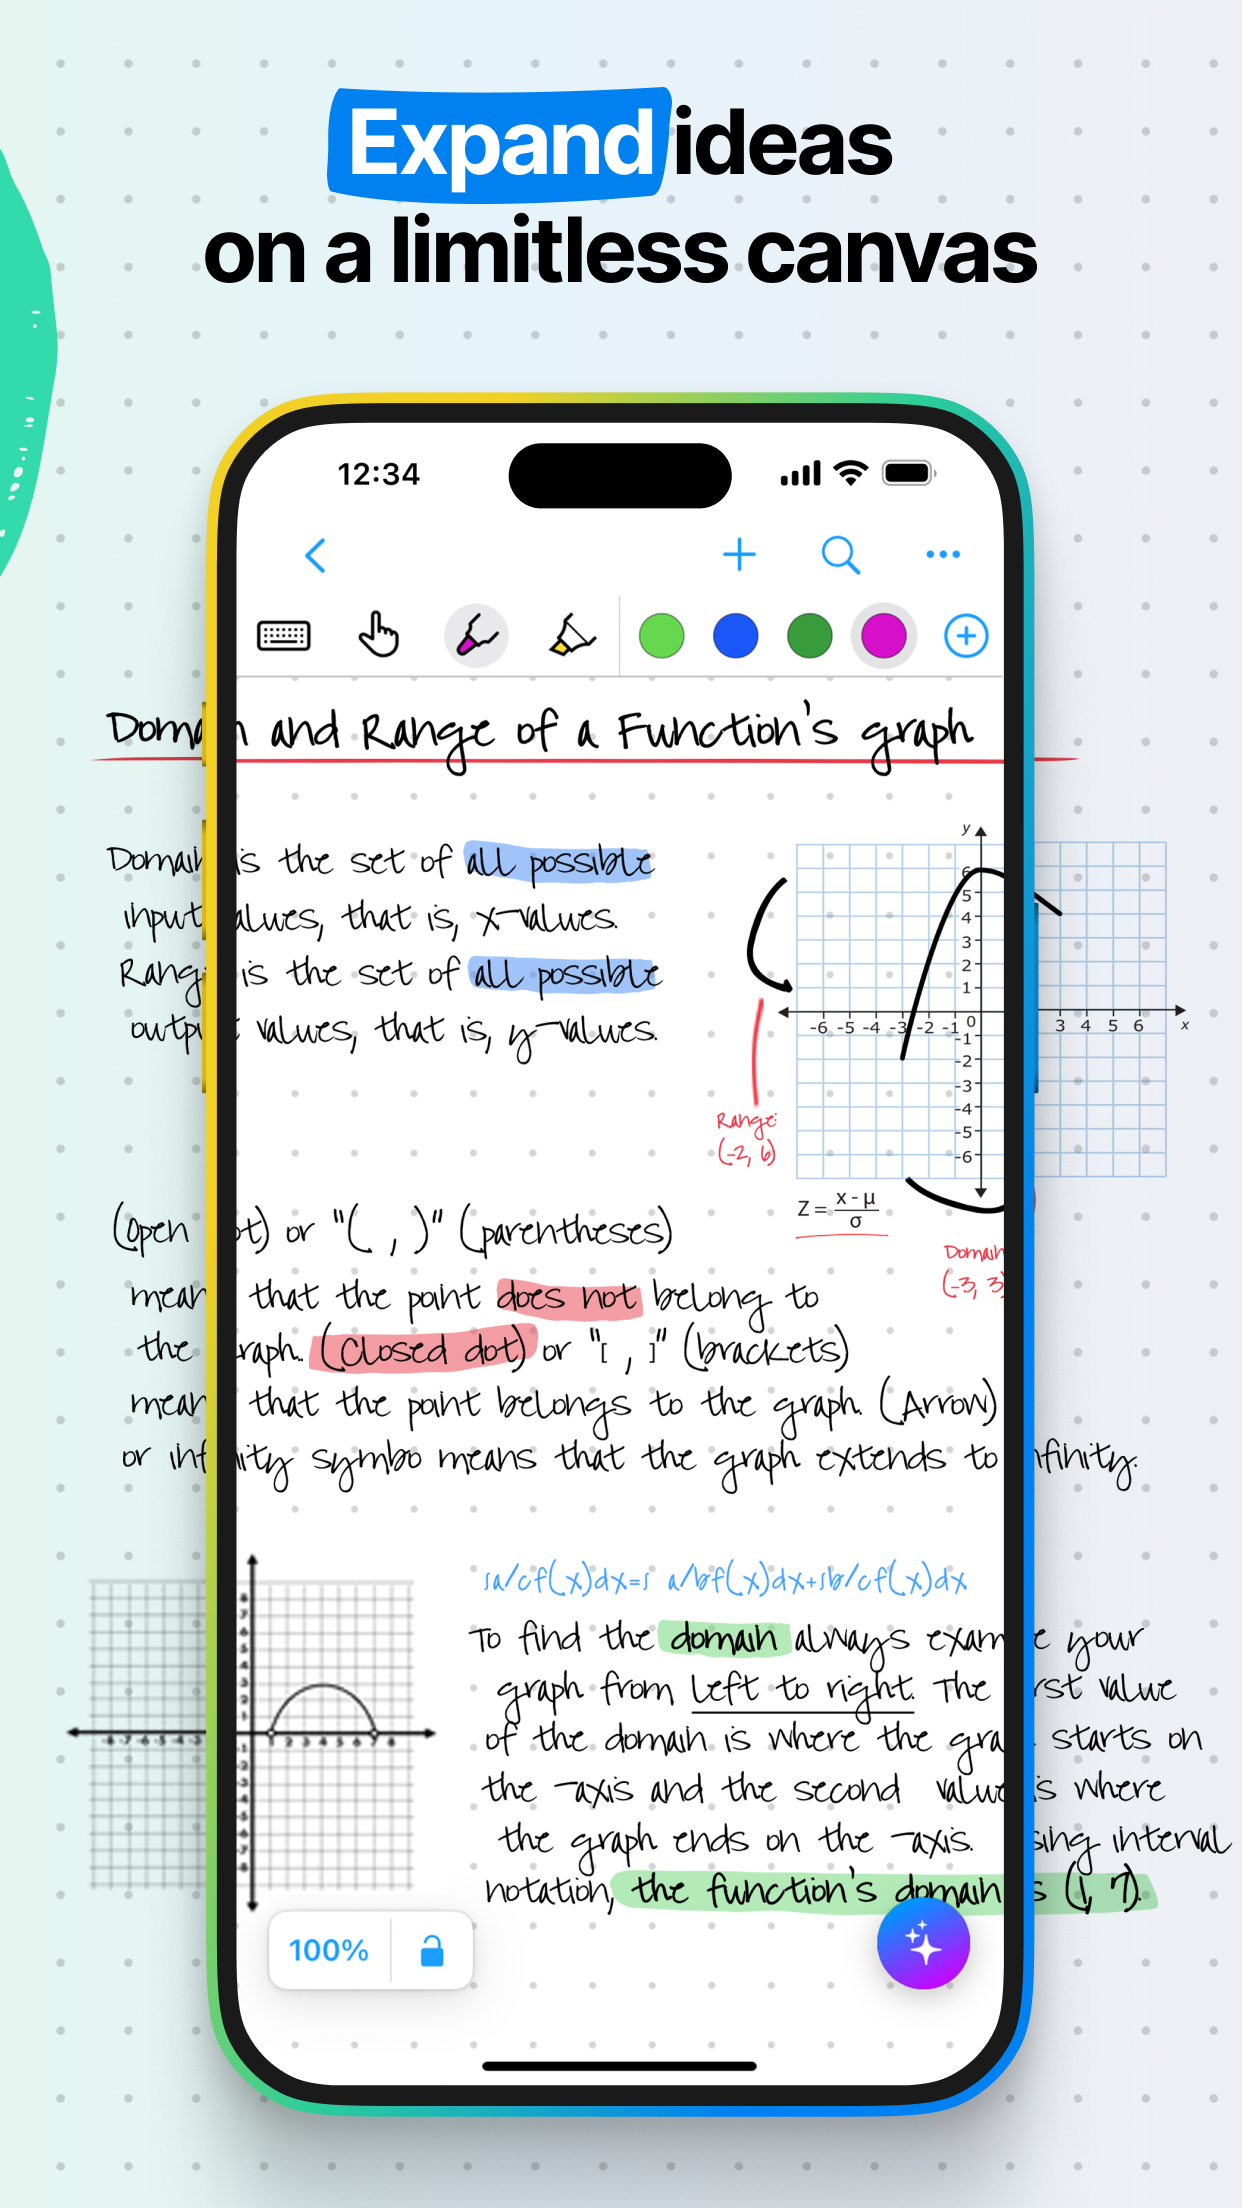 Expand ideas
on a limitless canvas
12:34
Domain and Range of a Function's graph
Domain is the set of all possible
input values, that is, x-values.
Range is the set of all possible
output values, that is, y-values.
y
6
5
4
3
2
1
-6 -5 -4 -3 -2 -1 0 3 4 5 6 x
-1
-2
-3
-4
-5
-6
Range:
(-2, 6)
Z = x - μ
σ
Domain
(-3, 3)
(Open dot) or "( , )" (parentheses)
mean that the point does not belong to
the graph. (Closed dot) or "[ , ]" (brackets)
mean that the point belongs to the graph. (Arrow)
or infinity symbo means that the graph extends to infinity.
8
7
6
5
4
3
2
1
-8 -7 -6 -5 -4 -3 1 2 3 4 5 6 7 8
-1
-2
-3
-4
-5
-6
-7
-8
sa/cf(x)dx=s a/bf(x)dx+sb/cf(x)dx
To find the domain always examine your
graph from left to right. The first value
of the domain is where the graph starts on
the -axis and the second value is where
the graph ends on the -axis. Using interval
notation, the function's domain is (1, 7).
100%